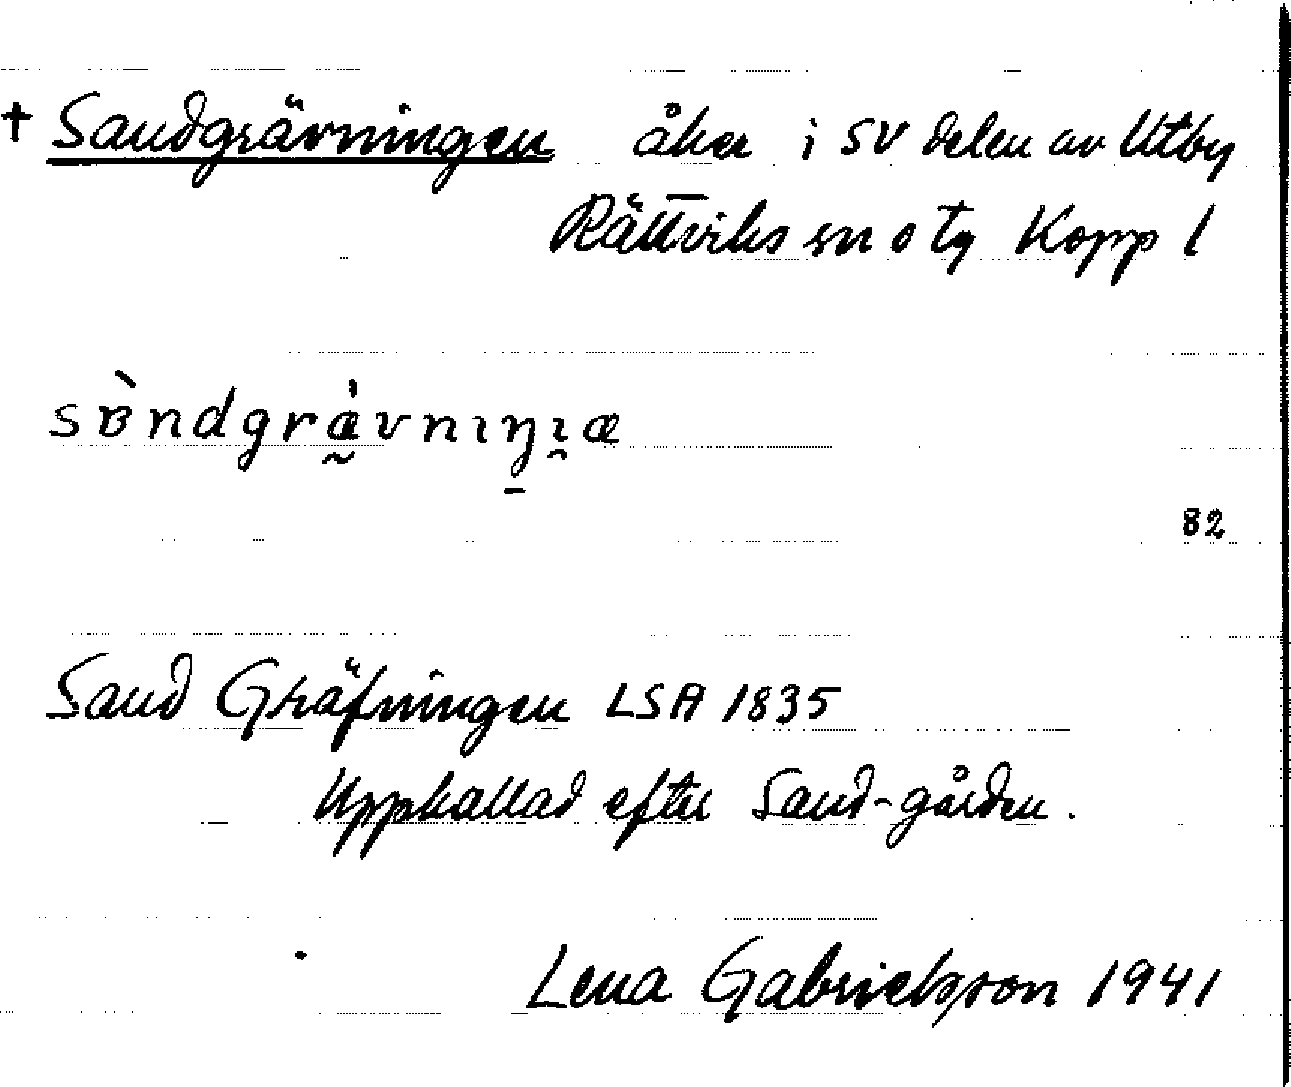 † Sandgrävningen åker i SV delen av Utby
Rättviks sn o tg Kopp l
sɐ̀ndgræ̰̀vnɪŋ̱ɪ̯æ
82
Sand Gräfningen LSA 1835
Uppkallad efter Sand-gården.
Lena Gabrielsson 1941